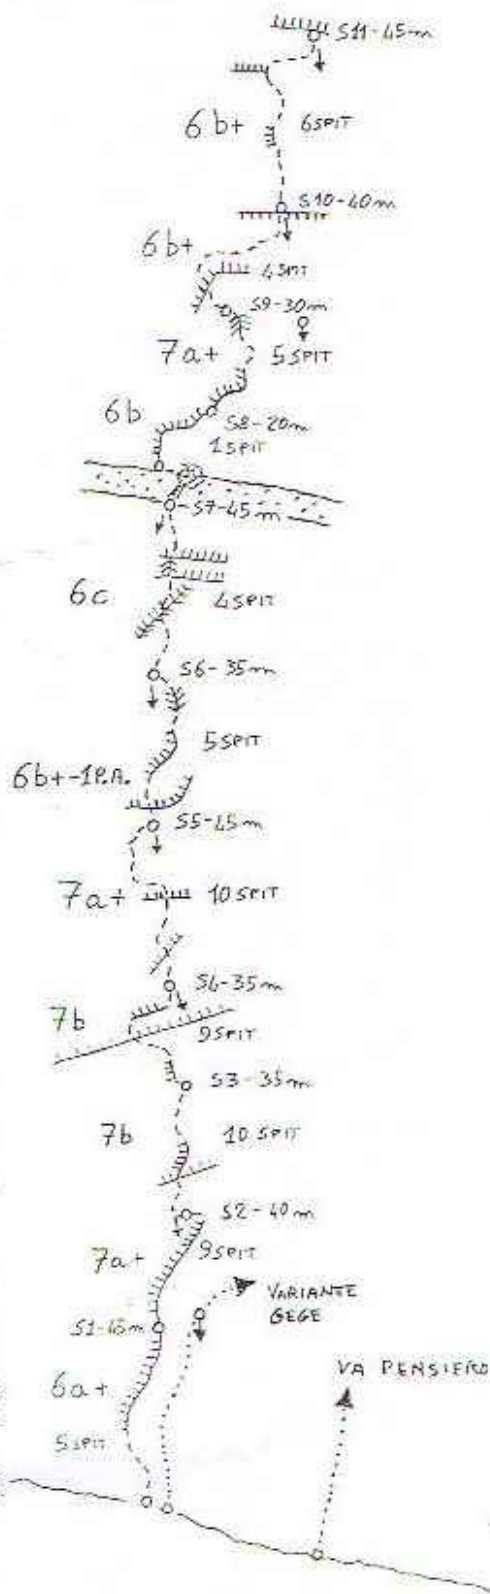 S11-45m
6b+
6SPIT
S10-40m
6b+
4SPIT
S9-30m
7a+
5SPIT
6b
S8-20m
1SPIT
S7-45m
6c
4SPIT
S6-35m
5SPIT
6b+-1P.A.
S5-45m
7a+
10SPIT
S4-35m
7b
9SPIT
S3-35m
7b
10SPIT
S2-40m
7a+
9SPIT
VARIANTE
GEGE
S1-45m
VA PENSIERO
6a+
5SPIT